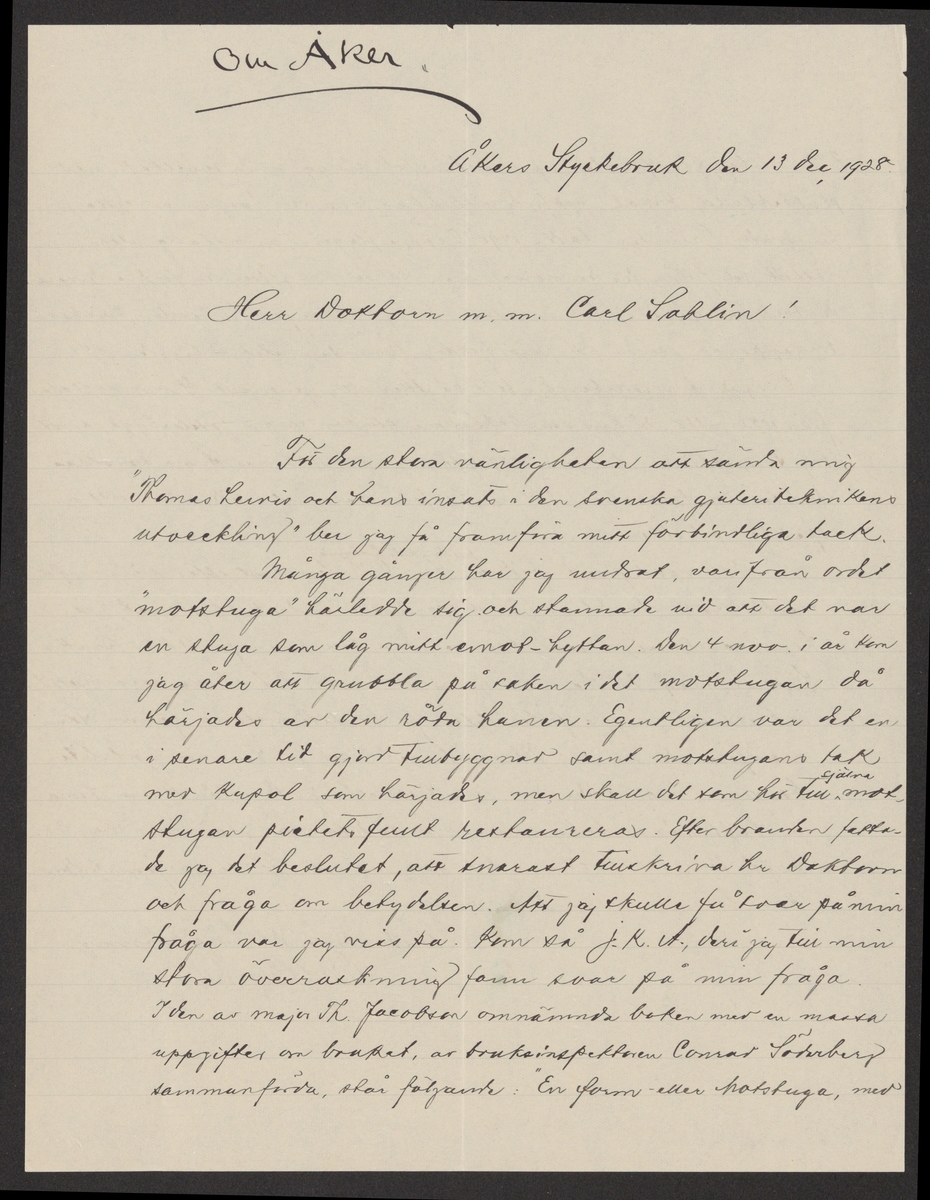 Om Åker.
Åkers Styckebruk den 13 dec, 1928.
Herr Doktorn m. m. Carl Sahlin!
För den stora vänligheten att sända mig
"Thomas Lewis och hans insats i den svenska gjuteriteknikens
utveckling" ber jag få framföra mitt förbindliga tack.
Många gånger har jag undrat, varifrån ordet
"motstuga" härledde sig och stannade vid att det var
en stuga som låg mitt emot-hyttan. Den 4 nov. i år kom
jag åter att grubbla på saken i det motstugan då
härjades av den röda hanen. Egentligen var det en
i senare tid gjord tillbyggnad samt motstugans tak
med kupol som härjades, men skall det som hör till själva mot-
stugan pietetsfullt restaureras. Efter branden fatta-
de jag det beslutet, att snarast tillskriva hr Doktorn
och fråga om betydelsen. Att jag skulle få svar på min
fråga var jag viss på. Kom så J. K. A., deri jag till min
stora överraskning fann svar på min fråga.
I den av major Th. Jacobson omnämnda boken med en massa
uppgifter om bruket, av bruksinspektoren Conrad Söderberg
sammanförda, står följande: "En form- eller Motstuga, med